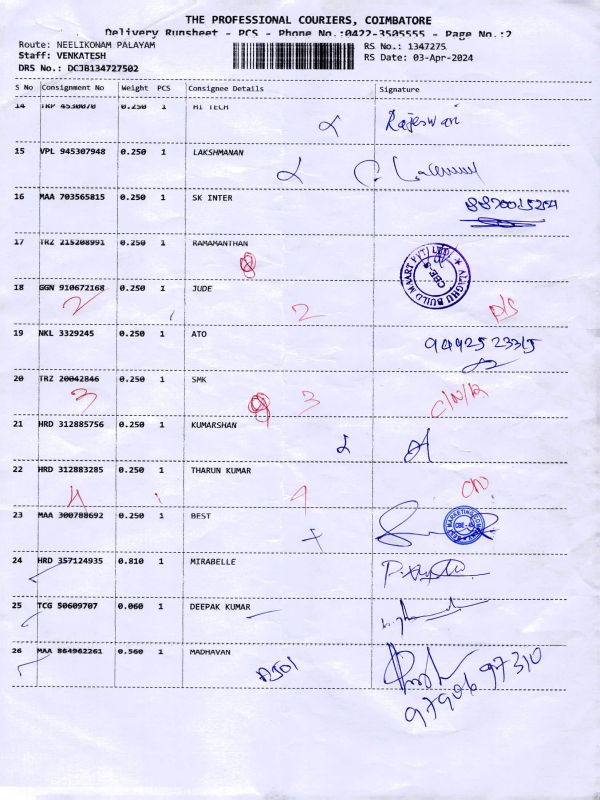 THE PROFESSIONAL COURIERS, COIMBATORE
Delivery Runsheet - PCS - Phone No.:0422-3505555 - Page No.:2
Route: NEELIKONAM PALAYAM
Staff: VENKATESH
DRS No.: DCJB134727502
RS No.: 1347275
RS Date: 03-Apr-2024
S No Consignment No Weight PCS Consignee Details Signature
14 TRP 4530070 0.250 1 HI TECH Rajeswari
15 VPL 945307948 0.250 1 LAKSHMANAN
16 MAA 703565815 0.250 1 SK INTER
17 TRZ 215208991 0.250 1 RAMAMANTHAN
18 GGN 910672168 0.250 1 JUDE
2 2 D/S
19 NKL 3329245 0.250 1 ATO
9442523315
20 TRZ 20042846 0.250 1 SMK
3 3 C/N/R
21 HRD 312885756 0.250 1 KUMARSHAN
22 HRD 312883285 0.250 1 THARUN KUMAR
4 4
23 MAA 300788692 0.250 1 BEST
24 HRD 357124935 0.810 1 MIRABELLE
25 TCG 50609707 0.060 1 DEEPAK KUMAR
26 MAA 864962261 0.560 1 MADHAVAN
A501
97906 97310